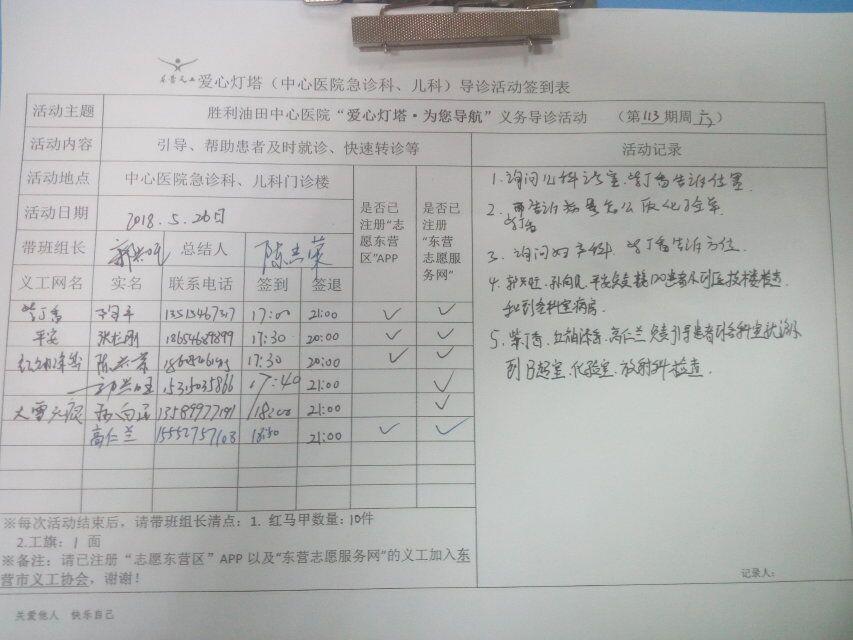 东营义工 爱心灯塔（中心医院急诊科、儿科）导诊活动签到表
活动主题 胜利油田中心医院“爱心灯塔·为您导航”义务导诊活动 （第113期周六）
活动内容 引导、帮助患者及时就诊、快速转诊等 活动记录
活动地点 中心医院急诊科、儿科门诊楼 是否已注册“志愿东营区”APP 是否已注册“东营志愿服务网”
活动日期 2018.5.26日
带班组长 郭兴旺 总结人
义工网名 实名 联系电话 签到 签退
紫丁香 17:00 21:00 ✓ ✓
平安 18654689899 17:30 20:00 ✓ ✓
17:30 20:00 ✓ ✓
郭兴旺 15315035866 17:40 21:00 ✓
大雪无痕 孙向民 18:00 21:00 ✓
高仁兰 15552757108 18:30 21:00 ✓ ✓
1. 询问儿科诊室，紫丁香告诉位置
2.
3. 询问妇产科，紫丁香告诉方位.
4. 郭兴旺、孙向民、平安负责接120患者
和到各科室病房
5. 紫丁香、高仁兰负责引导患者到各科室就诊
到B超室、化验室、放射科检查.
※每次活动结束后，请带班组长清点：1. 红马甲数量：10件
2.工旗：1 面
※备注：请已注册“志愿东营区”APP 以及“东营志愿服务网”的义工加入东
营市义工协会，谢谢！
记录人：
关爱他人 快乐自己